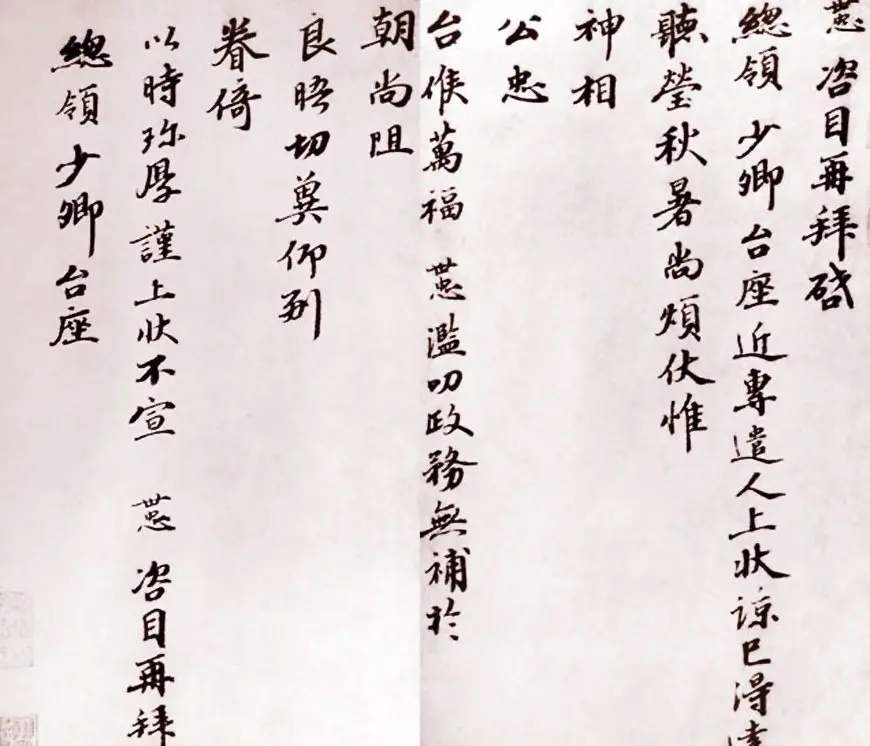 咨目再拜啓
總領少卿台座近專遣人上狀諒已得達
聽瑩秋暑尚煩伏惟
神相
公忠
台候萬福 濫叨政務無補於
朝尚阻
良晤切冀仰副
眷倚
以時珎厚謹上狀不宣 咨目再拜
總領少卿台座